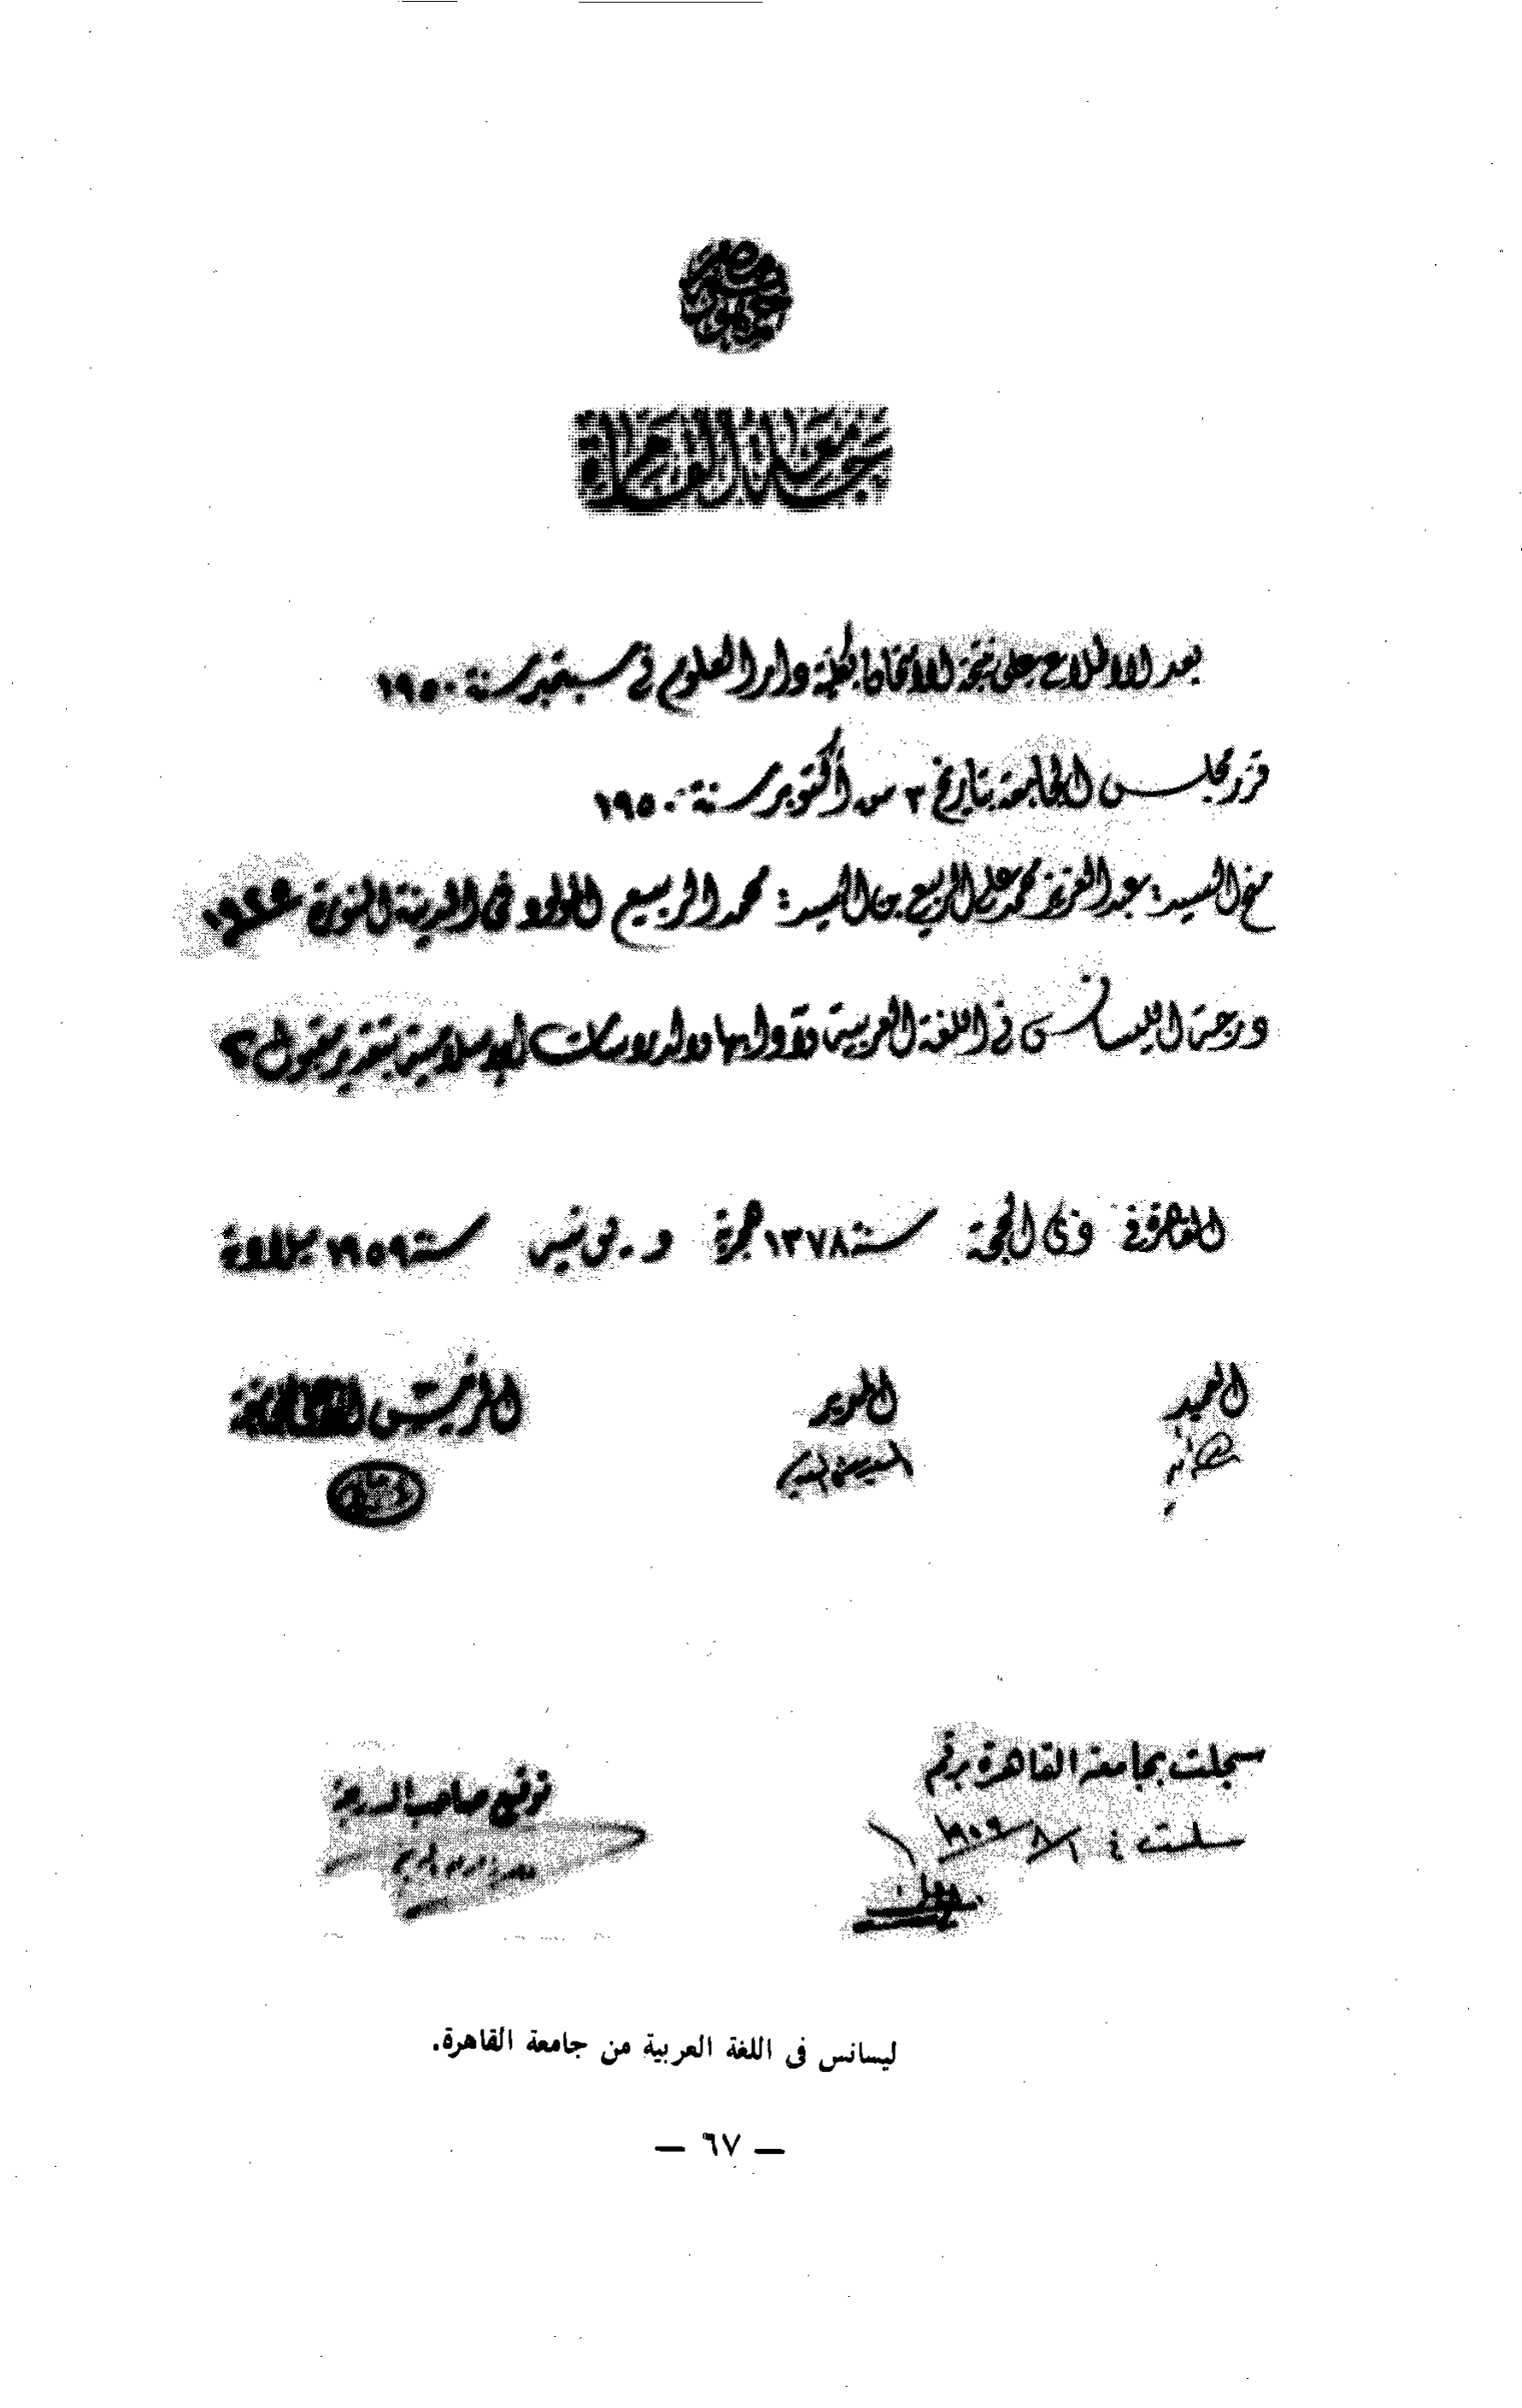 جمهورية مصر
جامعة القاهرة
بعد الاطلاع على نتيجة الامتحان بكلية دار العلوم في سبتمبر سنة ١٩٥٠
قرر مجلس الجامعة بتاريخ ٣ من أكتوبر سنة ١٩٥٠
منح السيد : عبد العزيز محمد على الربيع بن السيد : محمد الربيع المولود فى المدينة المنورة
درجة الليسانس في اللغة العربية وآدابها والدراسات الإسلامية بتقدير مقبول
القاهرة في ذى الحجة سنة ١٣٧٨ هجرية و يونيه سنة ١٩٥٩ ميلادية
العميد المدير الرئيس الأعلى للجامعة
سجلت بجامعة القاهرة برقم
توقيع صاحب الدرجة
سلمت : ١ / ٨ / ١٩٥٩
ليسانس فى اللغة العربية من جامعة القاهرة.
— ٦٧ —